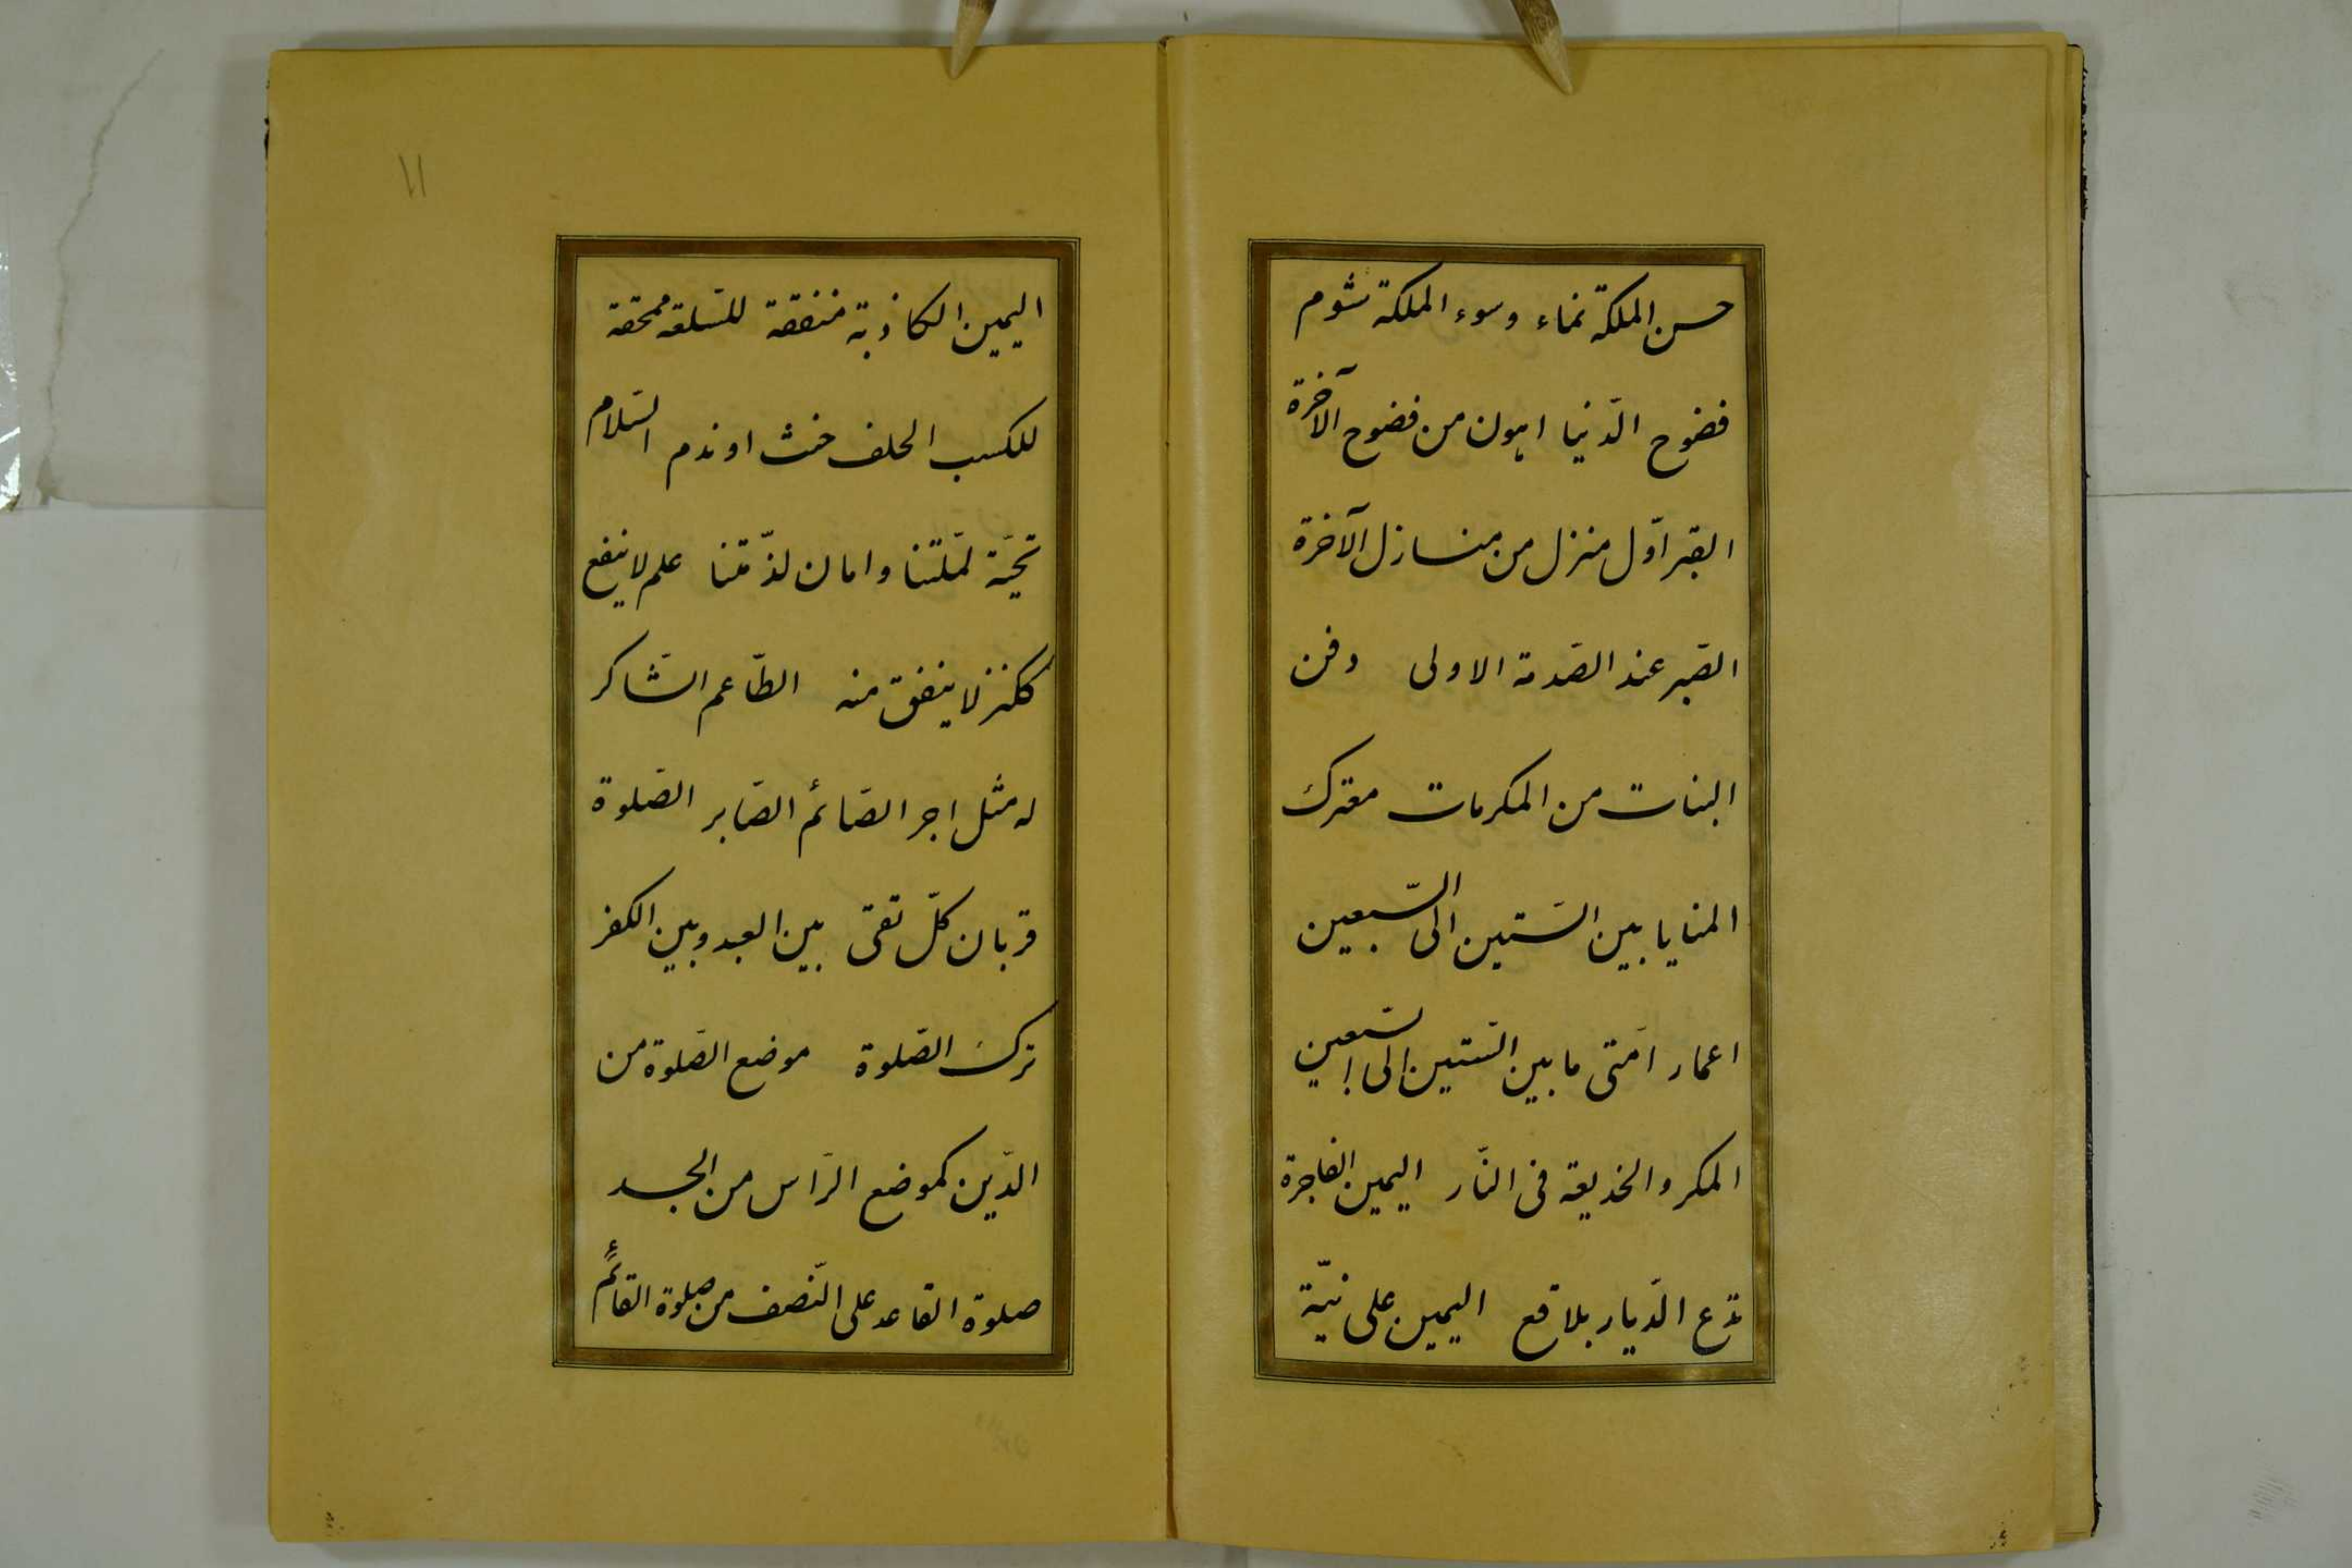 حسن الملكة نماء وسوء الملكة شوم
فضوح الدّنيا اهون من فضوح الآخرة
القبر اوّل منزل من منازل الآخرة
الصّبر عند الصّدمة الاولى دفن
البنات من المكرمات معترك
المنايا بين السّتين الى السّبعين
اعمار امّتى ما بين السّتين الى السّبعين
المكر والخديعة فى النّار اليمين الفاجرة
تدع الدّيار بلاقع اليمين على نيّة
١١
اليمين الكاذبة منفقة للسّلعة ممحقة
للكسب الحلف حنث او ندم السّلام
تحيّة لملّتنا وامان لذمّتنا علم لا ينفع
ككنز لا ينفق منه الطّاعم الشّاكر
له مثل اجر الصّائم الصّابر الصّلوة
قربان كلّ تقىّ بين العبد وبين الكفر
ترك الصّلوة موضع الصّلوة من
الدّين كموضع الرّاس من الجسد
صلوة القاعد على النّصف من صلوة القائم